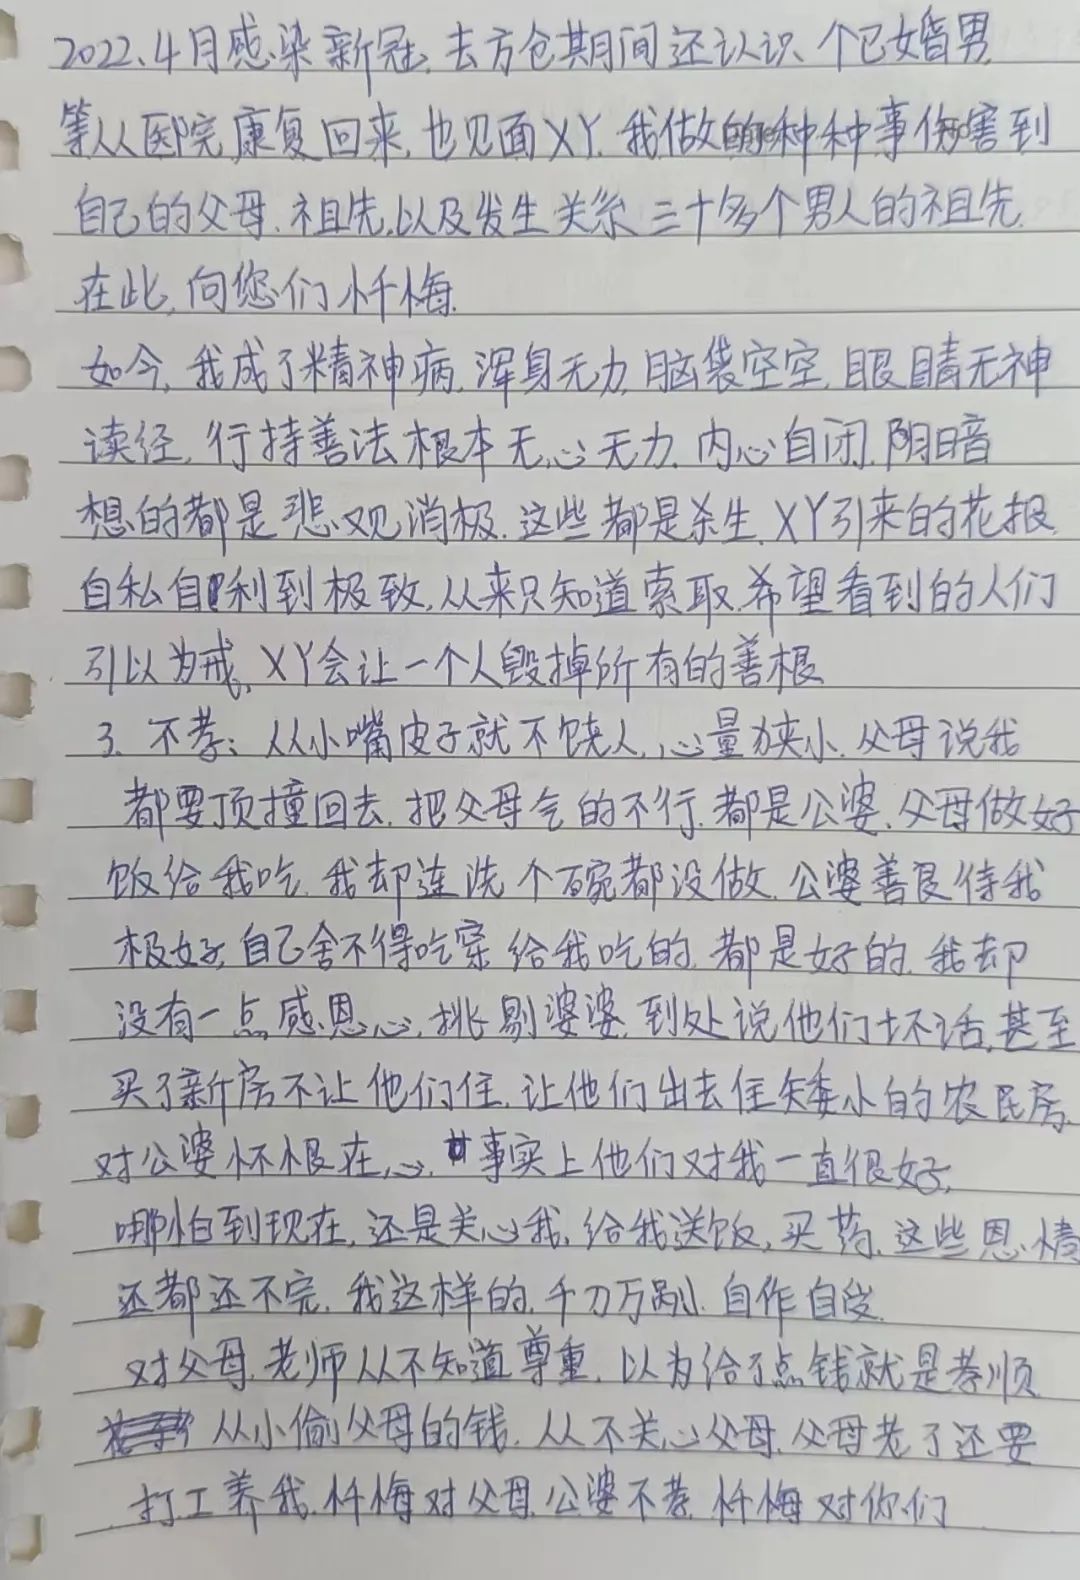 2022.4月感染新冠,去方仓其月间还认识个已婚男
等从医院康复回来,也见面XY.我做的种种事伤害到
自己的父母.祖先,以及发生关系三十多个男人的祖先
在此,向您们忏悔.
如今,我成了精神病,浑身无力,脑袋空空,眼睛无神
读经,行持善法根本无心无力.内心自闭.阴暗
想的都是悲观消极.这些都是杀生,XY引来的花报
自私自利到极致,从来只知道索取.希望看到的人们
引以为戒,XY会让一个人毁掉所有的善根
3.不孝:从小嘴皮子就不饶人,心量狭小.父母说我
都要顶撞回去.把父母气的不行.都是公婆.父母做好
饭给我吃.我却连洗个碗都没做.公婆善良待我
极好,自己舍不得吃穿给我吃的都是好的.我却
没有一点感恩心,挑剔婆婆,到处说他们坏话,甚至
买了新房不让他们住.让他们出去住矮小的农民房
对公婆怀恨在心.事实上他们对我一直很好,
哪怕到现在,还是关心我,给我送饭,买药.这些恩情
还都还不完.我这样的,千刀万剐.自作自受
对父母.老师从不知道尊重.以为给了点钱就是孝顺
从小偷父母的钱.从不关心父母,父母老了还要
打工养我.忏悔对父母公婆不孝.忏悔对你们